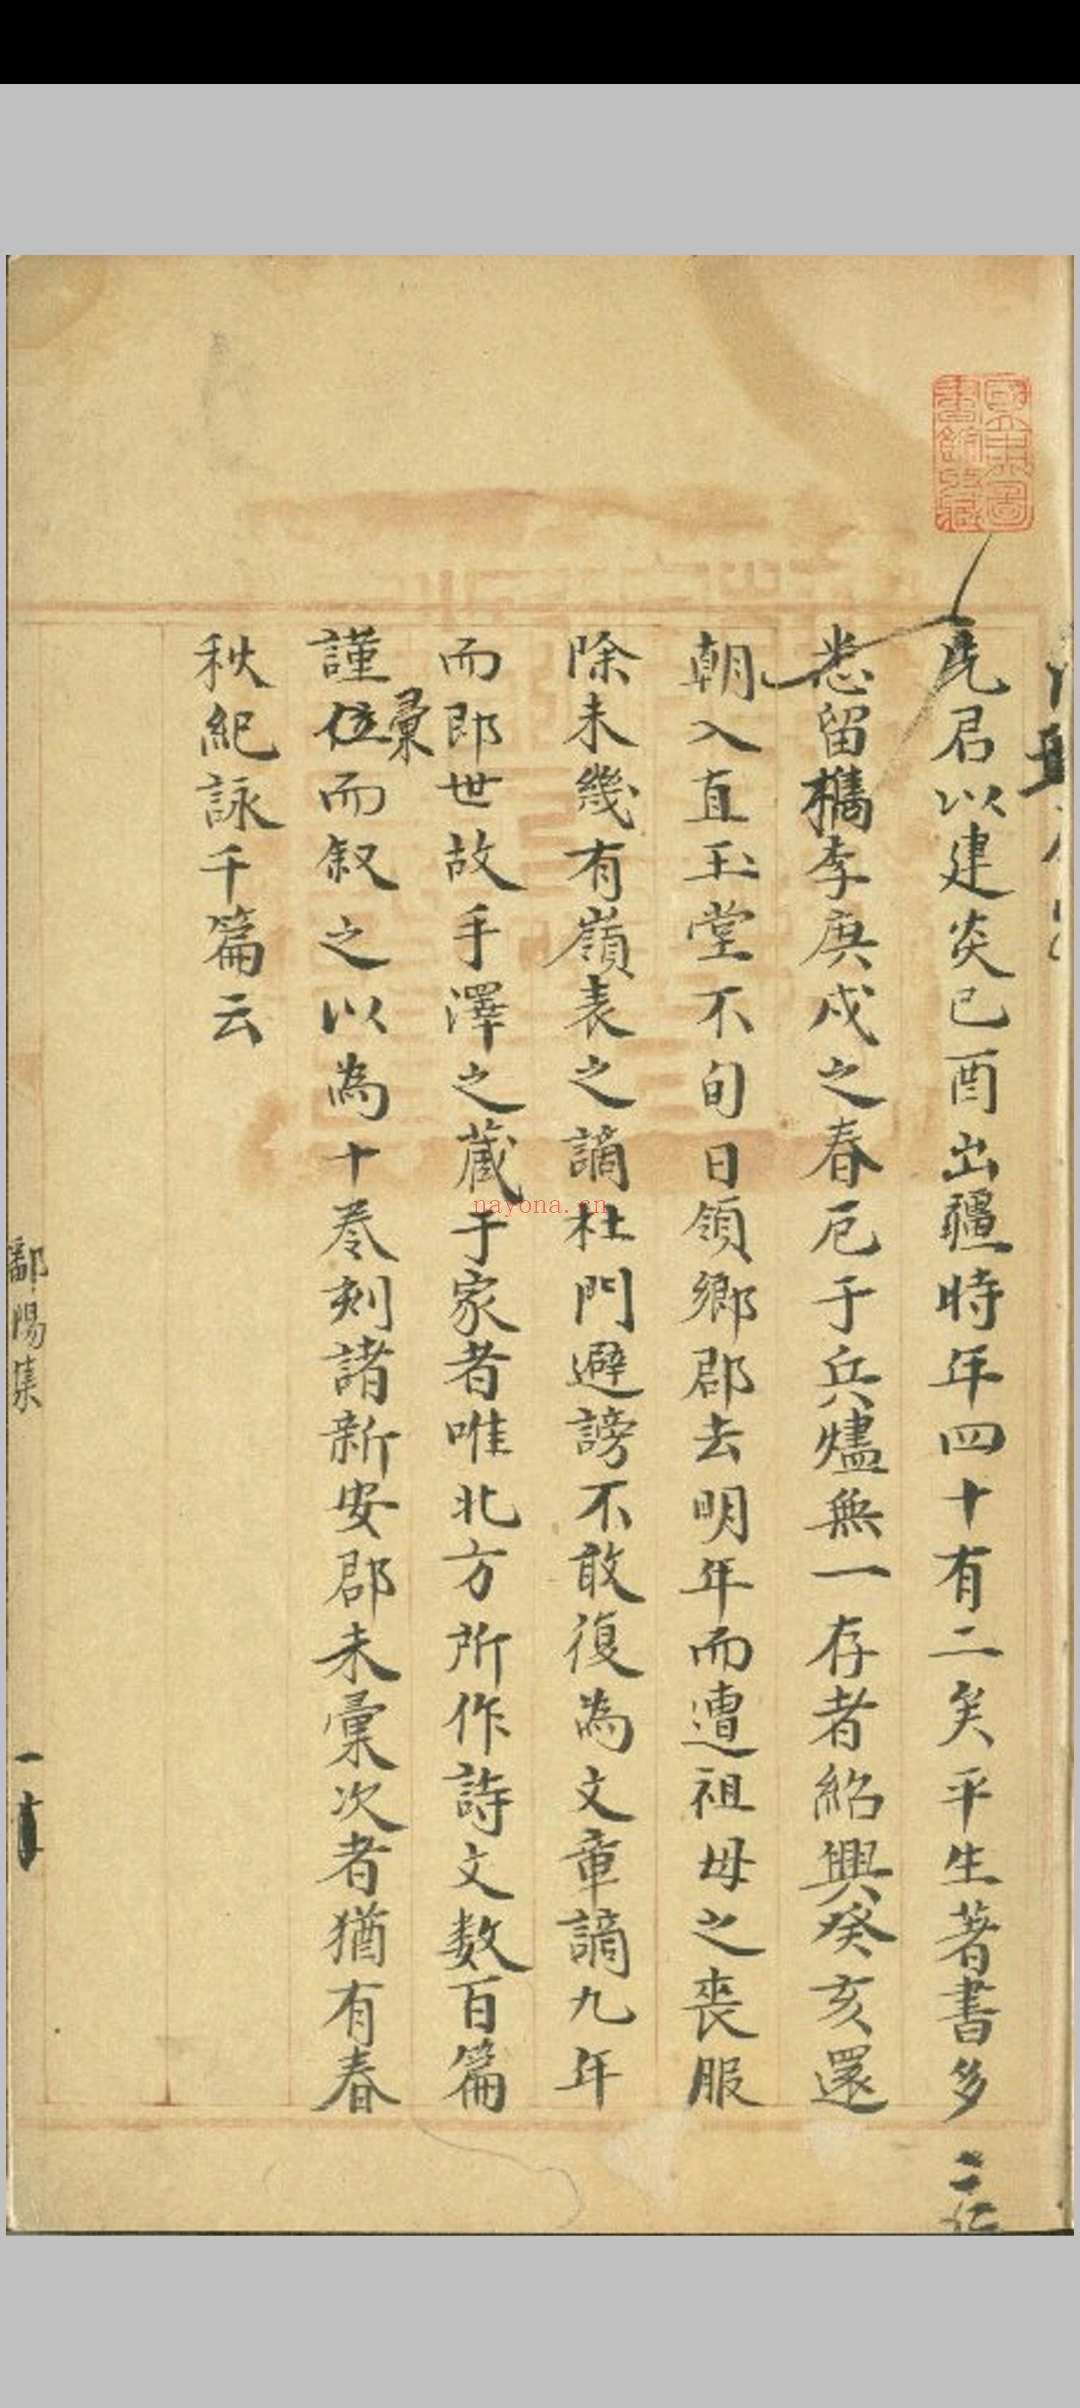 國立北平圖書館藏
先君以建炎己酉出疆時年四十有二矣平生著書多
悉留檇李庚戍之春厄于兵燼無一存者紹興癸亥還
朝入直玉堂不旬日領鄉郡去明年而遭祖母之喪服
除未幾有嶺表之謫杜門避謗不敢復為文章謫九年
而即世故手澤之蔵于家者唯北方所作詩文数百篇
謹位彚而叙之以為十卷刻諸新安郡未彚次者猶有春
秋紀詠千篇云
鄱陽集
一
nayona.cn